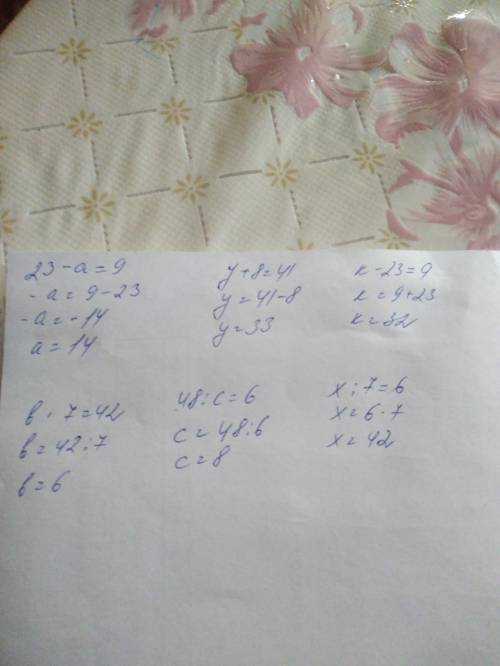 23-a=9
-a=9-23
-a=-14
a=14
y+8=41
y=41-8
y=33
к-23=9
к=9+23
к=32
в·7=42
в=42:7
в=6
48:c=6
c=48:6
c=8
x:7=6
x=6·7
x=42